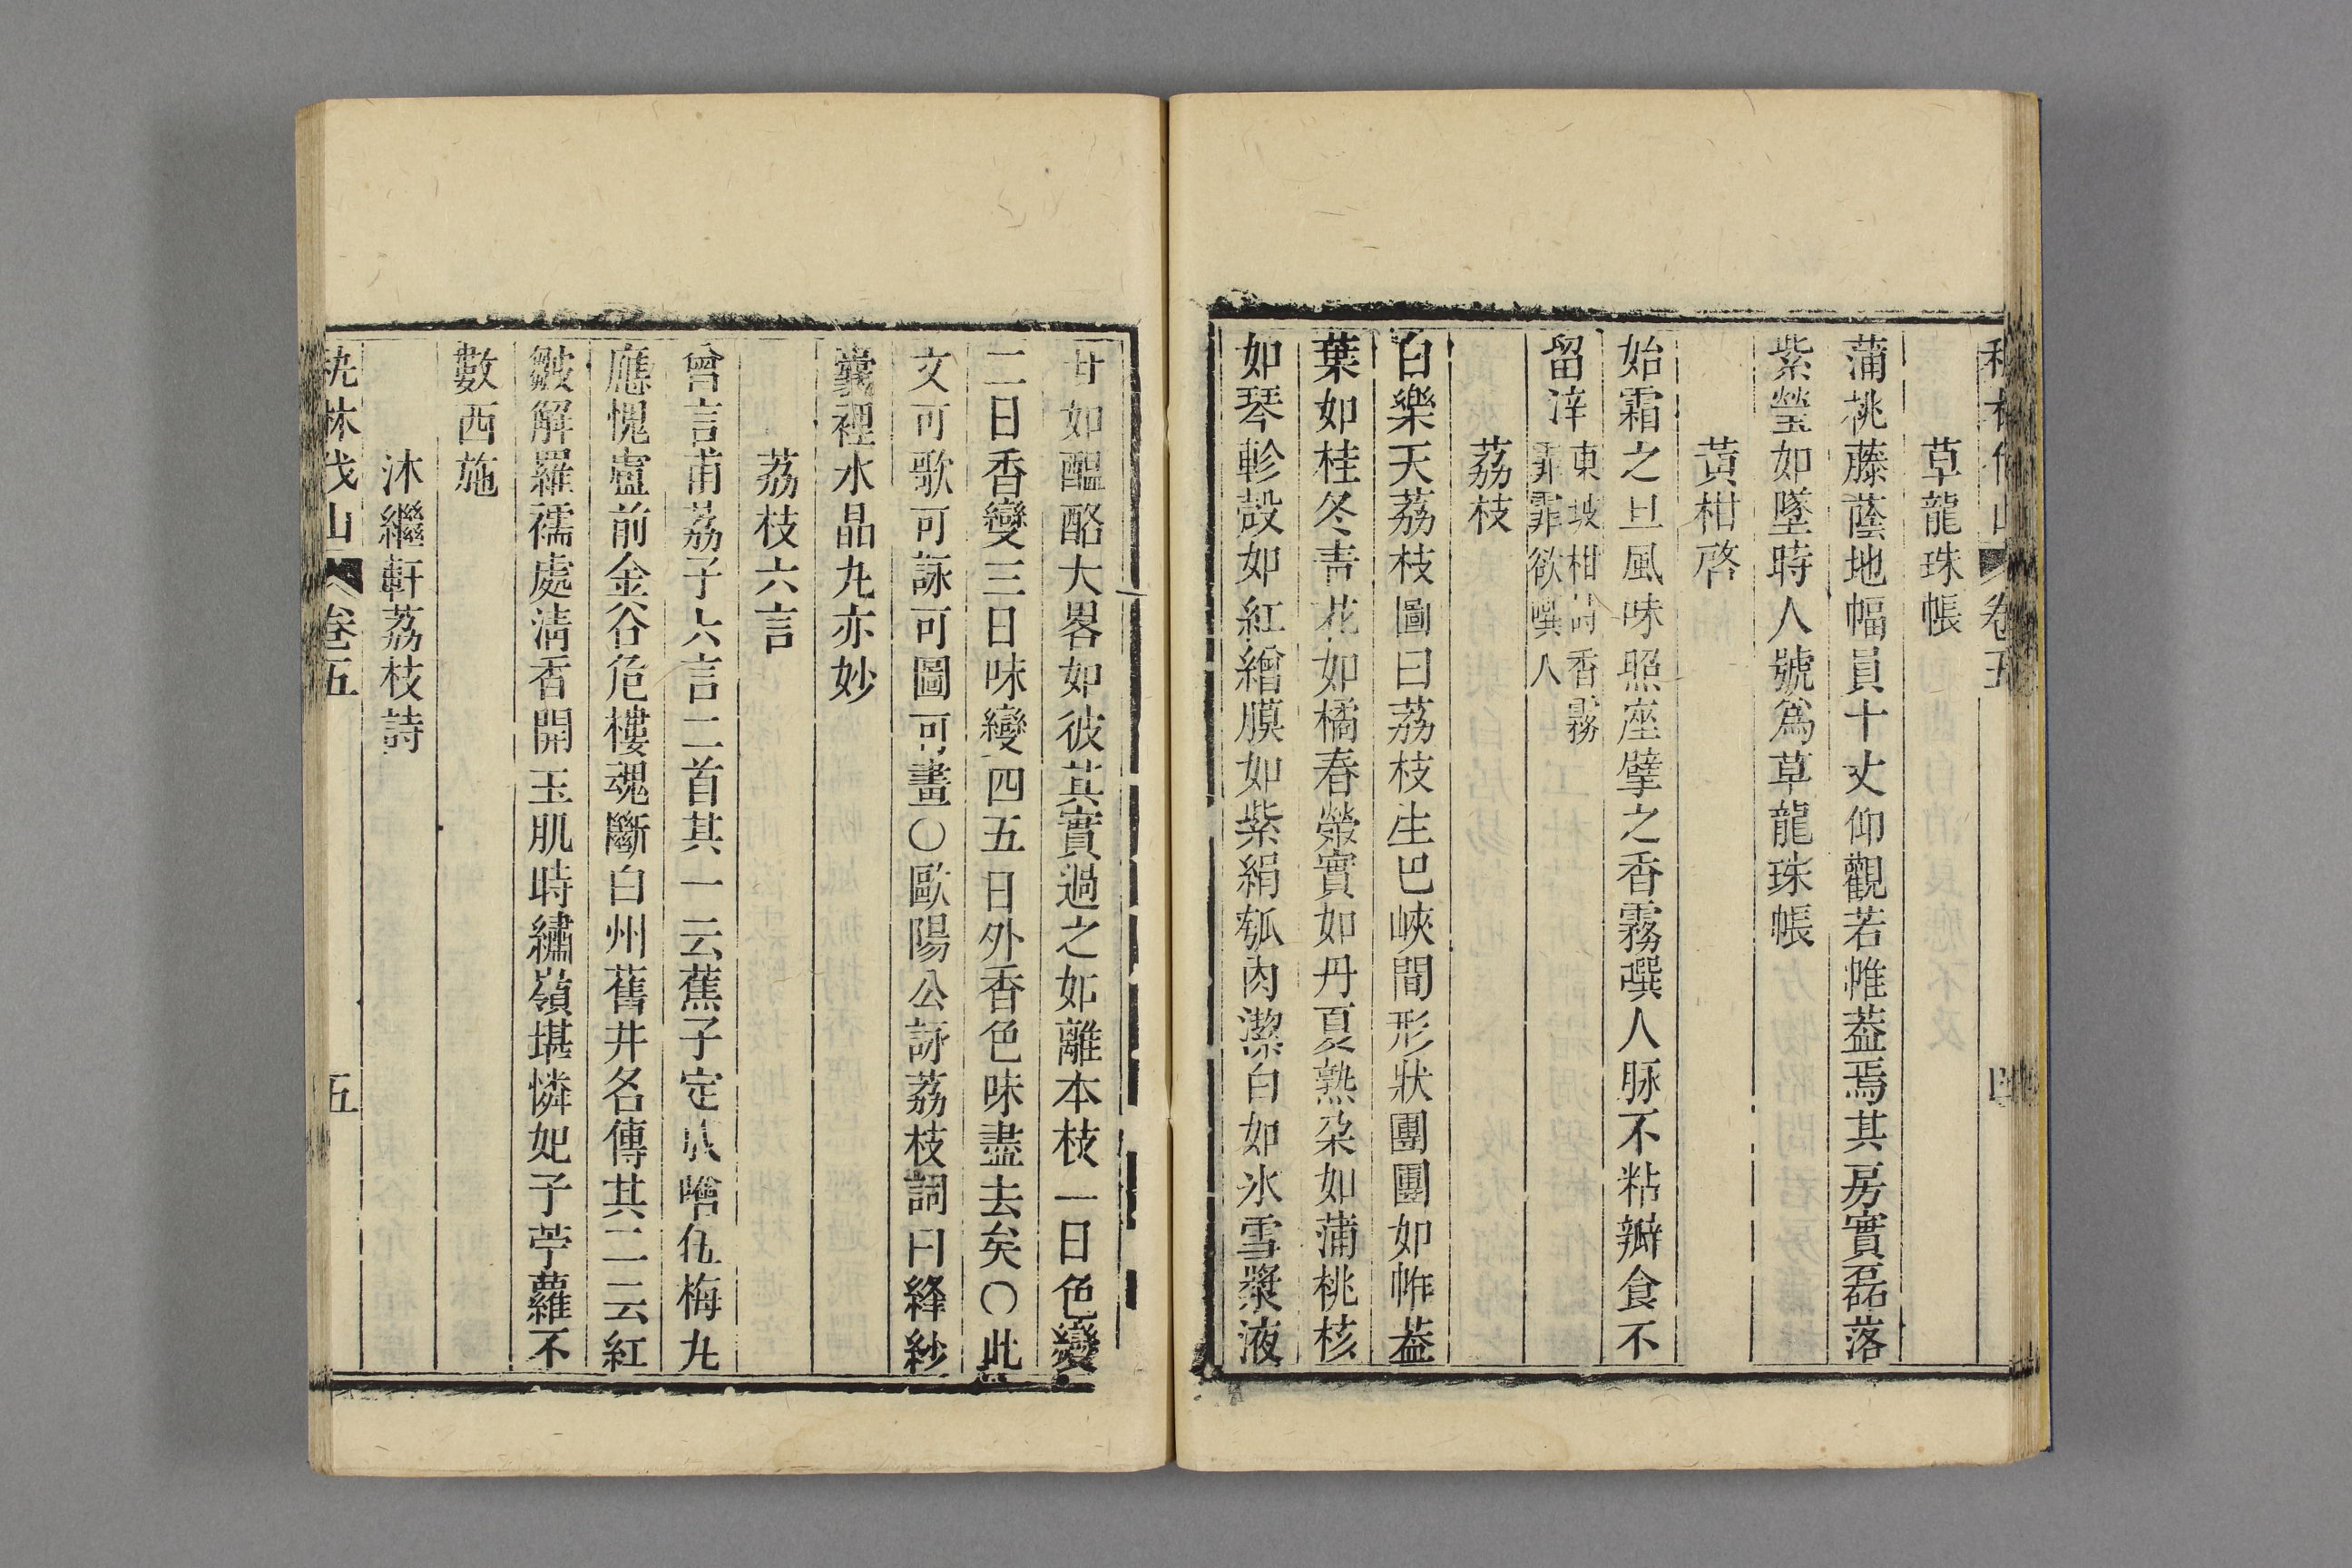 草龍珠帳
蒲桃藤蔭地幅員十丈仰觀若帷葢焉其房實磊落
紫瑩如墜時人號爲草龍珠帳
黃柑啓
始霜之旦風味照座擘之香霧噀人脉不粘瓣食不
留滓東坡柑詩香霧
霏霏欲噀人
荔枝
白樂天荔枝圖曰荔枝生巴峽間形狀團團如帷葢
葉如桂冬青花如橘春榮實如丹夏熟朶如蒲桃核
如琴軫殼如紅繒膜如紫絹瓠肉潔白如氷雪漿液
甘如醞酪大畧如彼其實過之如離本枝一日色變
二日香變三日味變四五日外香色味盡去矣○此
文可歌可詠可圖可畫○歐陽公詠荔枝詞曰絳紗
囊裡水晶丸亦妙
荔枝六言
曾言甫荔子六言二首其一云蕉子定成噲伍梅丸
應愧盧前金谷危樓魂斷白州舊井名傳其二云紅
皺解羅襦處清香開玉肌時繡嶺堪憐妃子苧蘿不
數西施
沐繼軒荔枝詩
林伐山 卷五 五